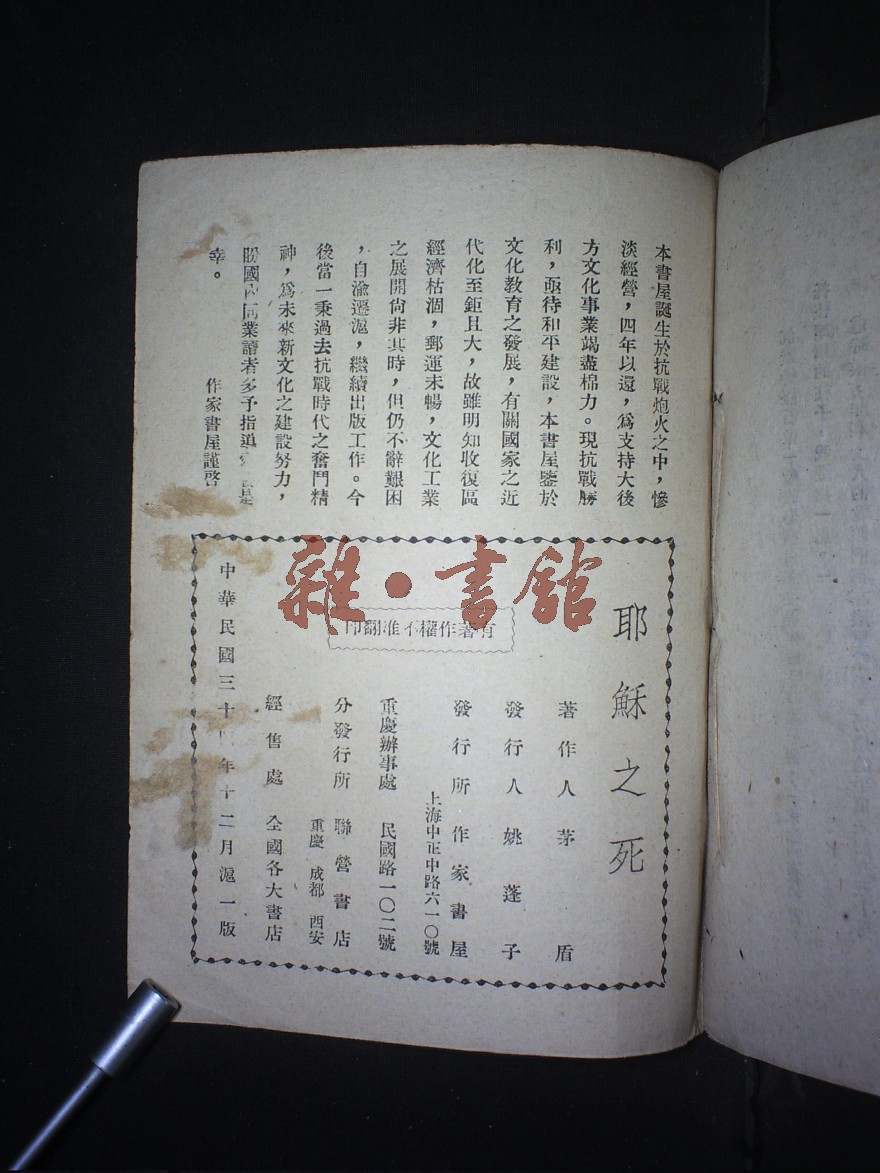 本書屋誕生於抗戰炮火之中，慘
淡經營，四年以還，爲支持大後
方文化事業竭盡棉力。現抗戰勝
利，亟待和平建設，本書屋鑒於
文化教育之發展，有關國家之近
代化至鉅且大，故雖明知收復區
經濟枯涸，郵運未暢，文化工業
之展開尚非其時，但仍不辭艱困
，自渝遷滬，繼續出版工作。今
後當一秉過去抗戰時代之奮鬥精
神，爲未來新文化之建設努力，
盼國內同業讀者多予指導 是
幸。
作家書屋謹啓
耶穌之死
著作人 茅盾
發行人 姚蓬子
發行所 作家書屋
上海中正中路六一〇號
重慶辦事處 民國路一〇二號
分發行所 聯營書店
重慶 成都 西安
經售處 全國各大書店
中華民國三十 年十二月滬一版
有著作權不准翻印
雜·書館